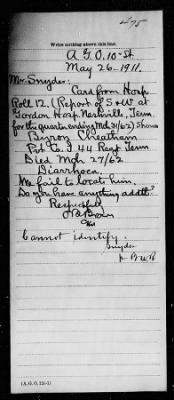 475
Write nothing above this line.
A.G.O. 10-St
May 26-1911.
Mr. Snyder:
Card from Hosp
Roll 12. (Report of S&W at
Gordon Hosp. Nashville, Tenn
for the quarter ending Mch 31/62) Shows
Binson Cheatham
Pvt Co. I 44 Regt Tenn
Died Mch 27/62
Diarrhoea.
We fail to locate him.
Do you have anything addtl?
Respectfully
Cannot identify.
Snyder
(A. G. O. 124-1)